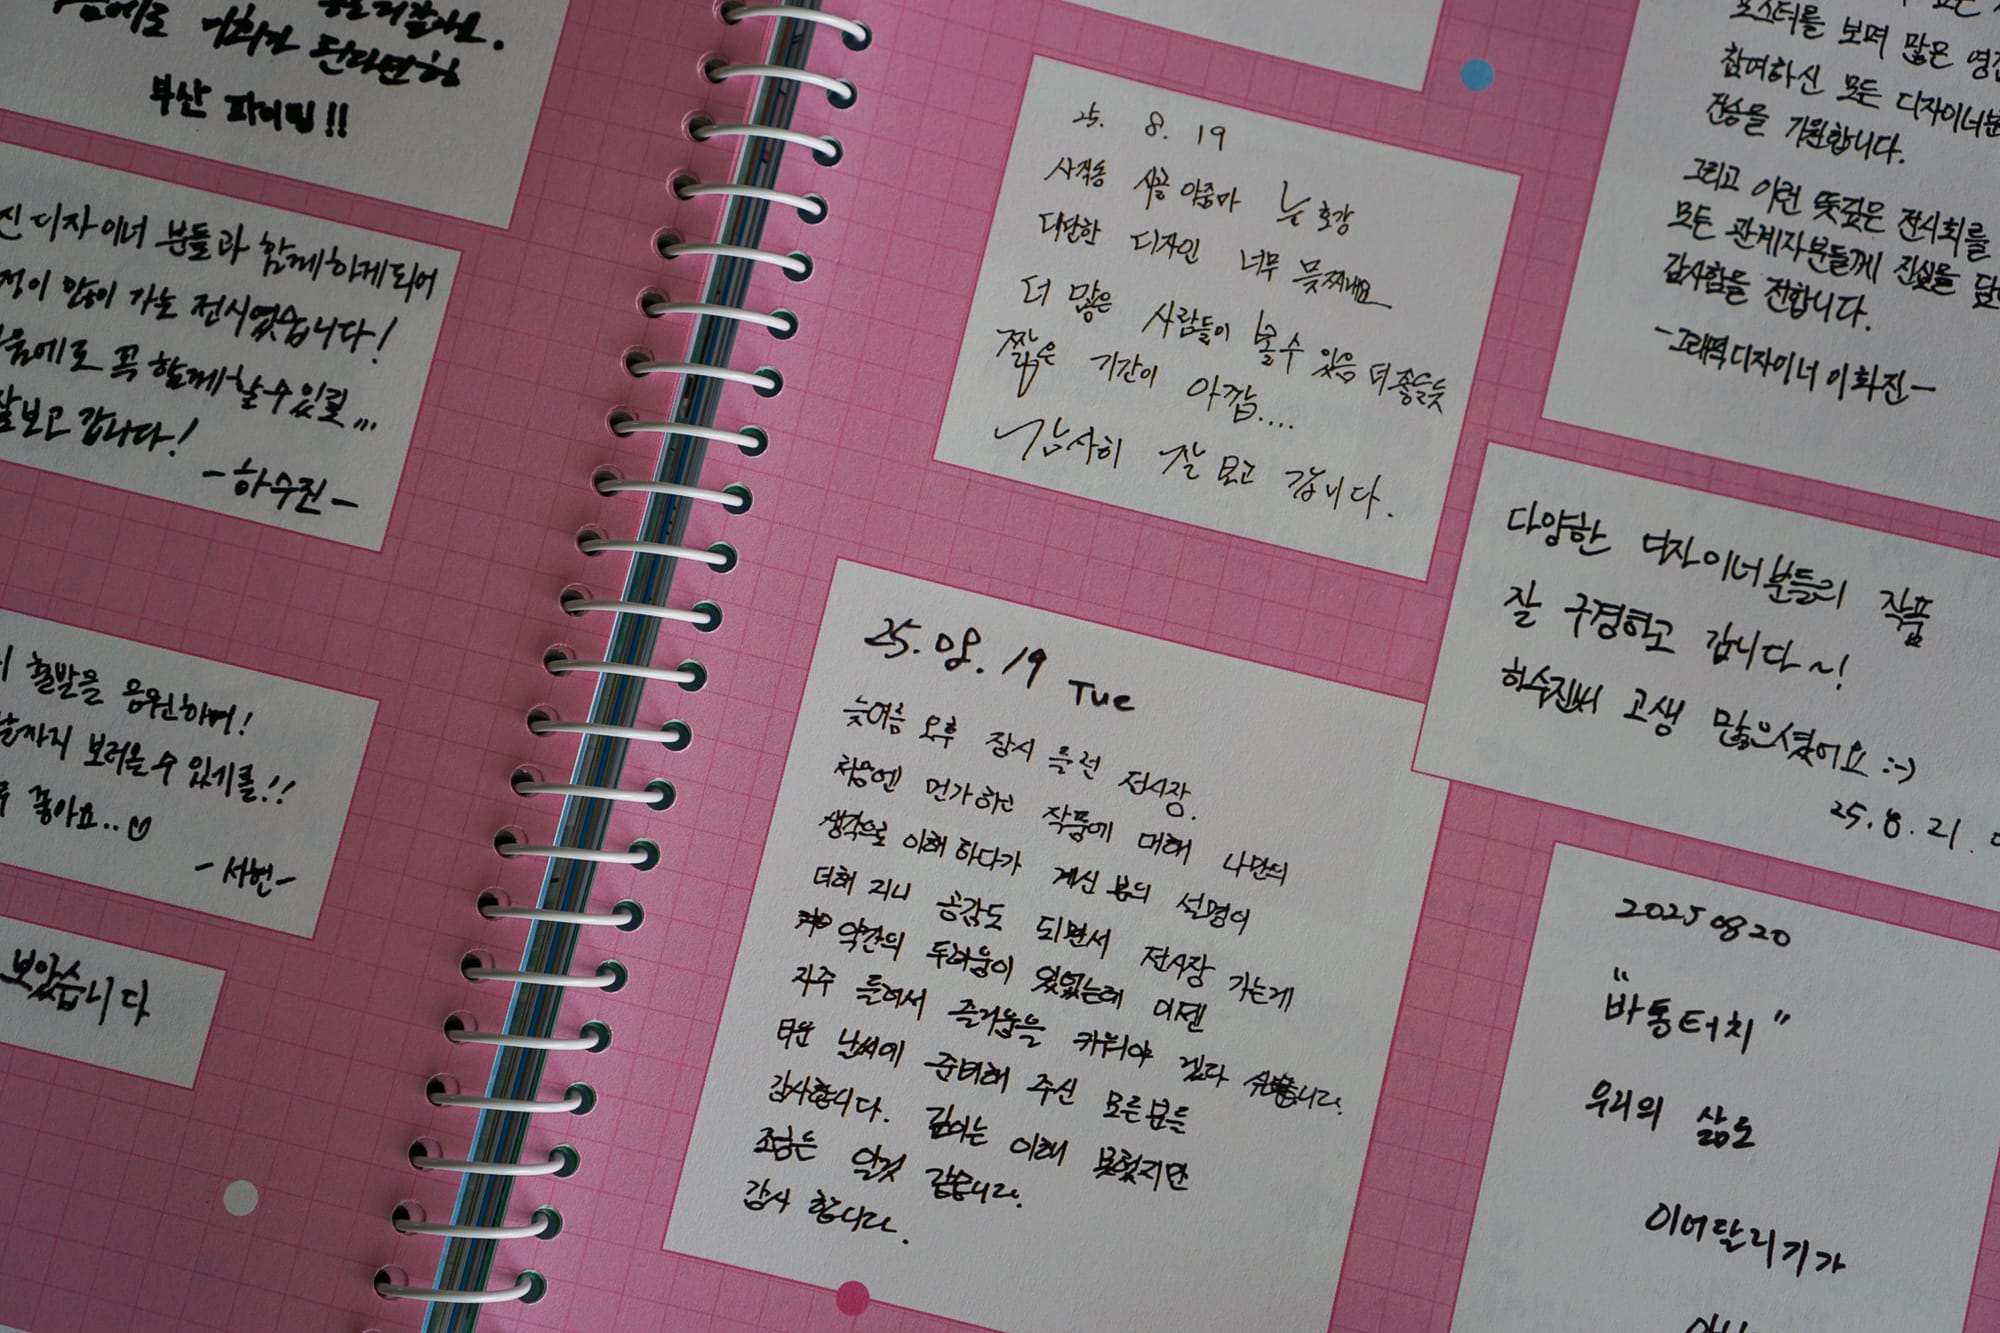 부산 파이팅!!
디자이너 분들과 함께하게되어
많이 가는 전시였습니다!
꼭 함께할수있길...
잘보고 갑니다!
-하수진-
출발을 응원하며!
보러올 수 있기를!!
좋아요..♡
-서현-
보았습니다
25. 8. 19
사직동 시골 아줌마
대단한 디자인 너무 멋찌네요
더 많은 사람들이 볼 수 있음 더 좋을듯
짧은 기간이 아깝....
감사히 잘 보고 갑니다.
25.08.19 Tue
늦여름 오후 잠시 들런 전시장.
처음엔 먼가하고 작품에 대해 나만의
생각으로 이해하다가 계신 분의 설명이
더해 지니 공감도 되면서 전시장 가는게
약간의 두려움이 있었는데 이젠
자주 들여서 즐거움을 키워야 겠다 싶습니다.
더운 날씨에 준비해 주신 모든분들
감사합니다. 깊이는 이해 못했지만
조금은 알것 같습니다.
감사 합니다.
포스터를 보며 많은
참여하신 모든 디자이너분
전승을 기원합니다.
그리고 이런 뜻깊은 전시회를
모든 관계자분들께 진심을
감사함을 전합니다.
-그래픽디자이너 이화진-
다양한 디자이너분들의 작품
잘 구경하고 갑니다~!
하수진씨 고생 많으셨어요 :-)
25.8.21.
20250820
"바통터치"
우리의 삶도
이어달리기가